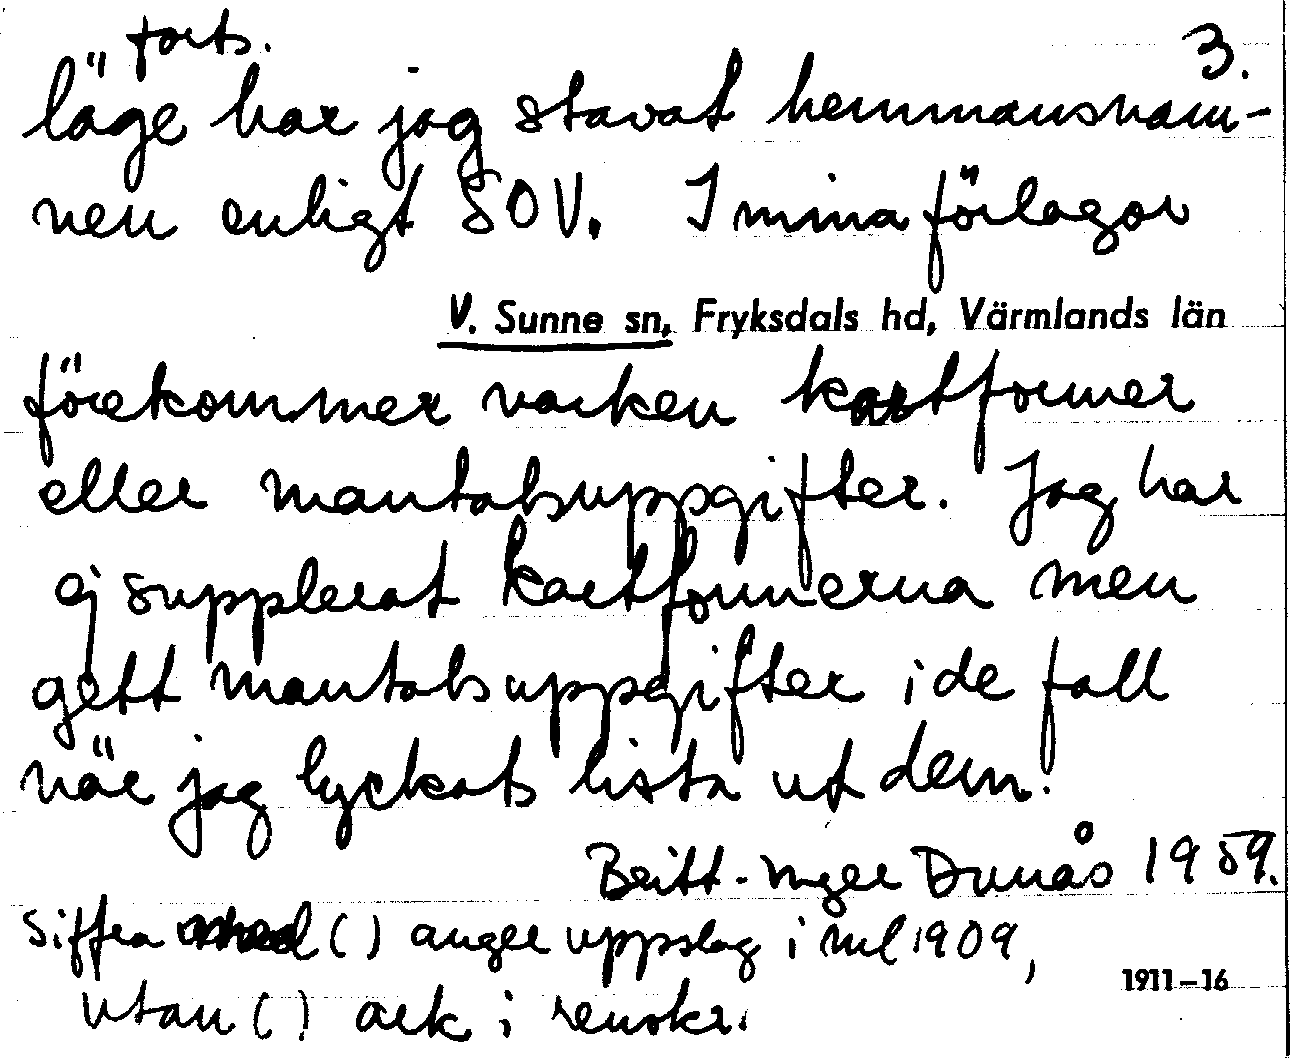 forts.
3.
läge har jag stavat hemmansnam-
nen enligt SOV. I mina förlagor
V. Sunne sn, Fryksdals hd, Värmlands län
förekommer varken kartformer
eller mantalsuppgifter. Jag har
ej supplerat kartformerna men
gett mantalsuppgifter i de fall
när jag lyckats lista ut dem.
Britt-Inger Dunås 1959.
Siffra med ( ) anger uppslag i ml 1909,
1911-16
utan ( ) ark i renskr.